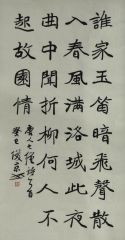 誰家玉笛暗飛聲散
入春風滿洛城此夜
曲中聞折柳何人不
起故園情
唐人七絕詩
癸巳